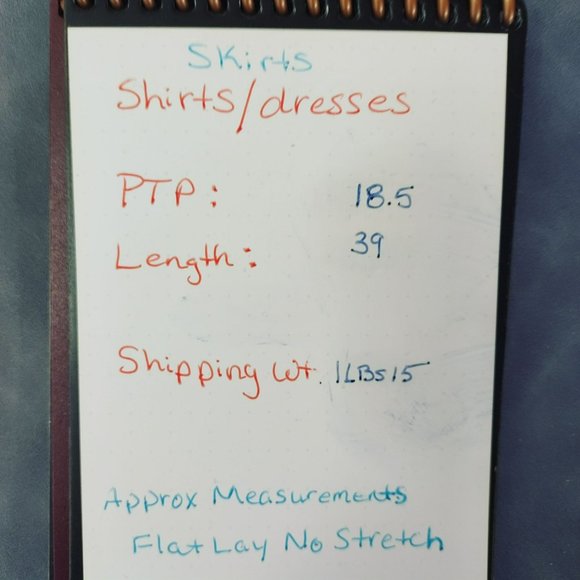 Skirts
Shirts/dresses
PTP: 18.5
Length: 39
Shipping Wt. 1LBs15
Approx Measurements
Flat Lay No Stretch